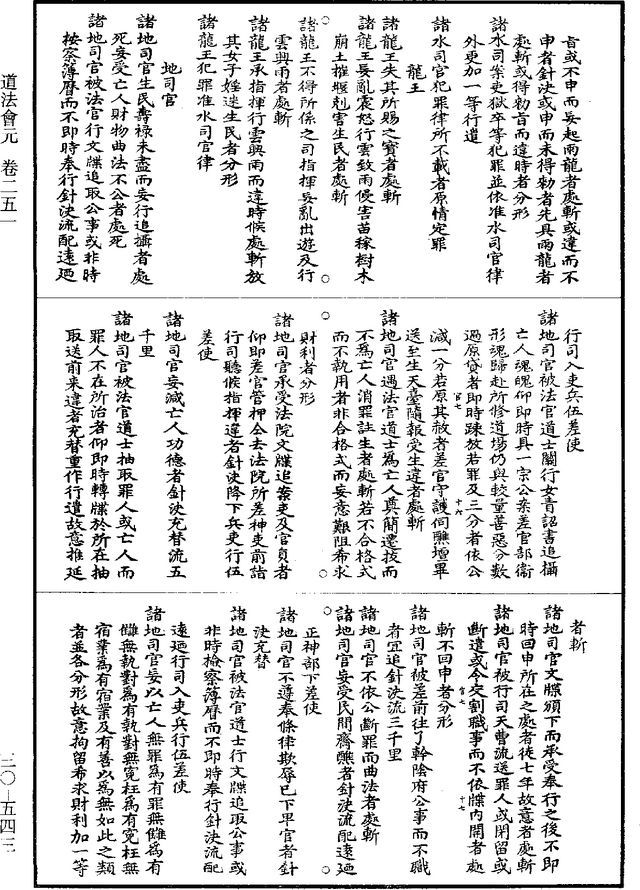 旨或不申而妄起雨龍者處斬或違而不
申者針決或申而未得勑者先具雨龍者
處斬或得勑旨而違時者分形
諸水司案吏獄卒等犯罪並依准水司官律
外更加一等行遣
諸水司官犯罪律所不載者原情定罪
龍王
諸龍王失其所賜之寶者處斬
諸龍王妄亂震怒行雲致雨侵害苗稼樹木
崩土摧堰剋害生民者處斬
諸龍王不得所係之司指揮妄亂出遊及行
雲興雨者處斬
諸龍王承指揮行雲興雨而違時候處斬放
其女子婬迷生民者分形
諸龍王犯罪准水司官律
地司官
諸地司官生民壽祿未盡而妄行追攝者處
死妄受亡人財物曲法不公者處死
諸地司官被法官行文牒追取公事或非時
按察簿曆而不即時奉行針決流配遠廼
行司入吏兵伍差使
諸地司官被法官道士關行女青詔書追攝
亡人魂魄仰即時具一宗公案差官部衛
形魂歸赴所修道場仍與較量善惡分數
過原貸者即時踈放若罪及三分者依公
減一分若原其赦者差官守護伺醮壇畢
送至生天臺隨報受生違者處斬
諸地司官遇法官道士為亡人奠簡遷拔而
不為亡人消罪註生者處斬若不合格式
而不執用者非合格式而妄意艱阻希求
財利者分形
諸地司官承受法院文牒追案吏及官員者
仰即差官管押仝去法院所差神吏前詣
行司聽候指揮違者針決降下兵吏行伍
差使
諸地司官妄減亡人功德者針決充替流五
千里
諸地司官被法官道士抽取罪人或亡人而
罪人不在所治者仰即時轉牒於所在抽
取送前来違者充替重作行遣故意推延
者斬
諸地司官文牒頒下而承受奉行之後不即
時回申所在之處者徒七年故意者處斬
諸地司官被行司天曹流送罪人或閉留或
斷遣或令交割職事而不依牒內開者處
斬不回申者分形
諸地司官被差前往了幹陰府公事而不職
者㝎追針決流三千里
諸地司官不依公斷罪而曲法者處斬
諸地司官妄受民間齋醮者針決流配遠廼
正神部下差使
諸地司官不遵奉條律欺辱已下卑官者針
決充替
諸地司官被法官道士行文牒追取公事或
非時檢察簿曆而不即時奉行針決流配
遠廼行司入吏兵行伍差使
諸地司官妄以亡人無罪為有罪無讎為有
讎無執對為有執對無寃枉為有寃枉無
宿業為有宿業及有善以為無如此之類
者並各分形故意拘留希求財利加一等
道法會元 卷二五一
三〇—五四三
官七
十六
官七
十七